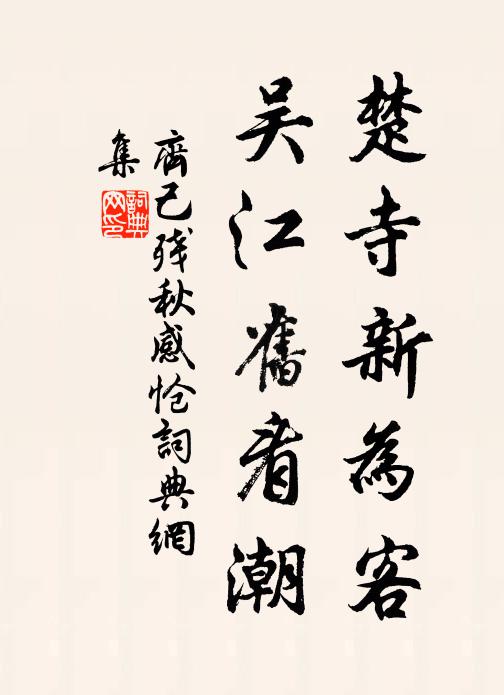 楚寺新為客
吳江舊看潮
齊己殘秋感愴詞典網
集
詞典
网印